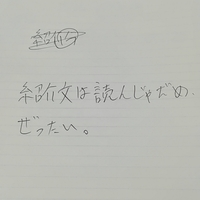 紹介文は読んじゃだめ.
ぜったい。